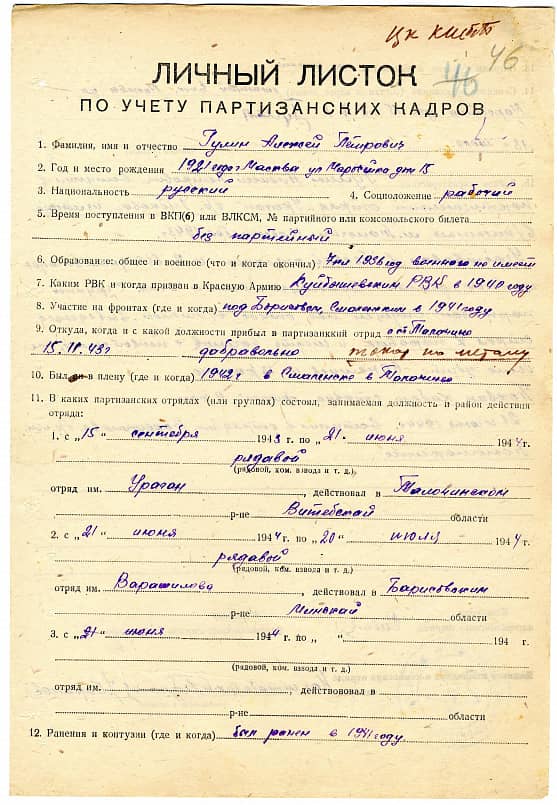 46
ЛИЧНЫЙ ЛИСТОК
ПО УЧЕТУ ПАРТИЗАНСКИХ КАДРОВ
1. Фамилия, имя и отчество Гулин Алексей Петрович
2. Год и место рождения 1921 год г Масква ул Маросейка дом 15
3. Национальность русский 4. Соцположение рабочий
5. Время поступления в ВКП(б) или ВЛКСМ, № партийного или комсомольского билета
без партейный
6. Образование: общее и военное (что и когда окончил) 7 кл 1936 год военного не имеет
7. Каким РВК и когда призван в Красную Армию Куйбышевским РВК в 1940 году
8. Участие на фронтах (где и когда) под Борисовом, Смоленском в 1941 году
9. Откуда, когда и с какой должности прибыл в партизанкий отряд с ст Толочино
15. IX. 43 г добравольно токар по металу
10. Был ли в плену (где и когда) 1942 г в Смоленске в Толочино
11. В каких партизанских отрядах (или группах) состоял, занимаемая должность и район действия
отряда:
1. с „15" сентября 1943 г. по „21" июня 1944 г.
рядавой
(рядовой, ком. взвода и т. д.)
отряд им. Ураган, действовал в Талочинском
р-не Витебскай области
2. с „21" июня 1944 г. по „20" июля 1944 г.
рядавой
(рядовой, ком. взвода и т. д.)
отряд им. Варашилова, действовал в Барисовским
р-не Минскай области
3. с „21" июня 1944 г. по „ " 194 г.
(рядовой, ком. взвода и т. д.)
отряд им. , действововал в
р-не области
12. Ранения и контузии (где и когда) был ранен в 1941 году.